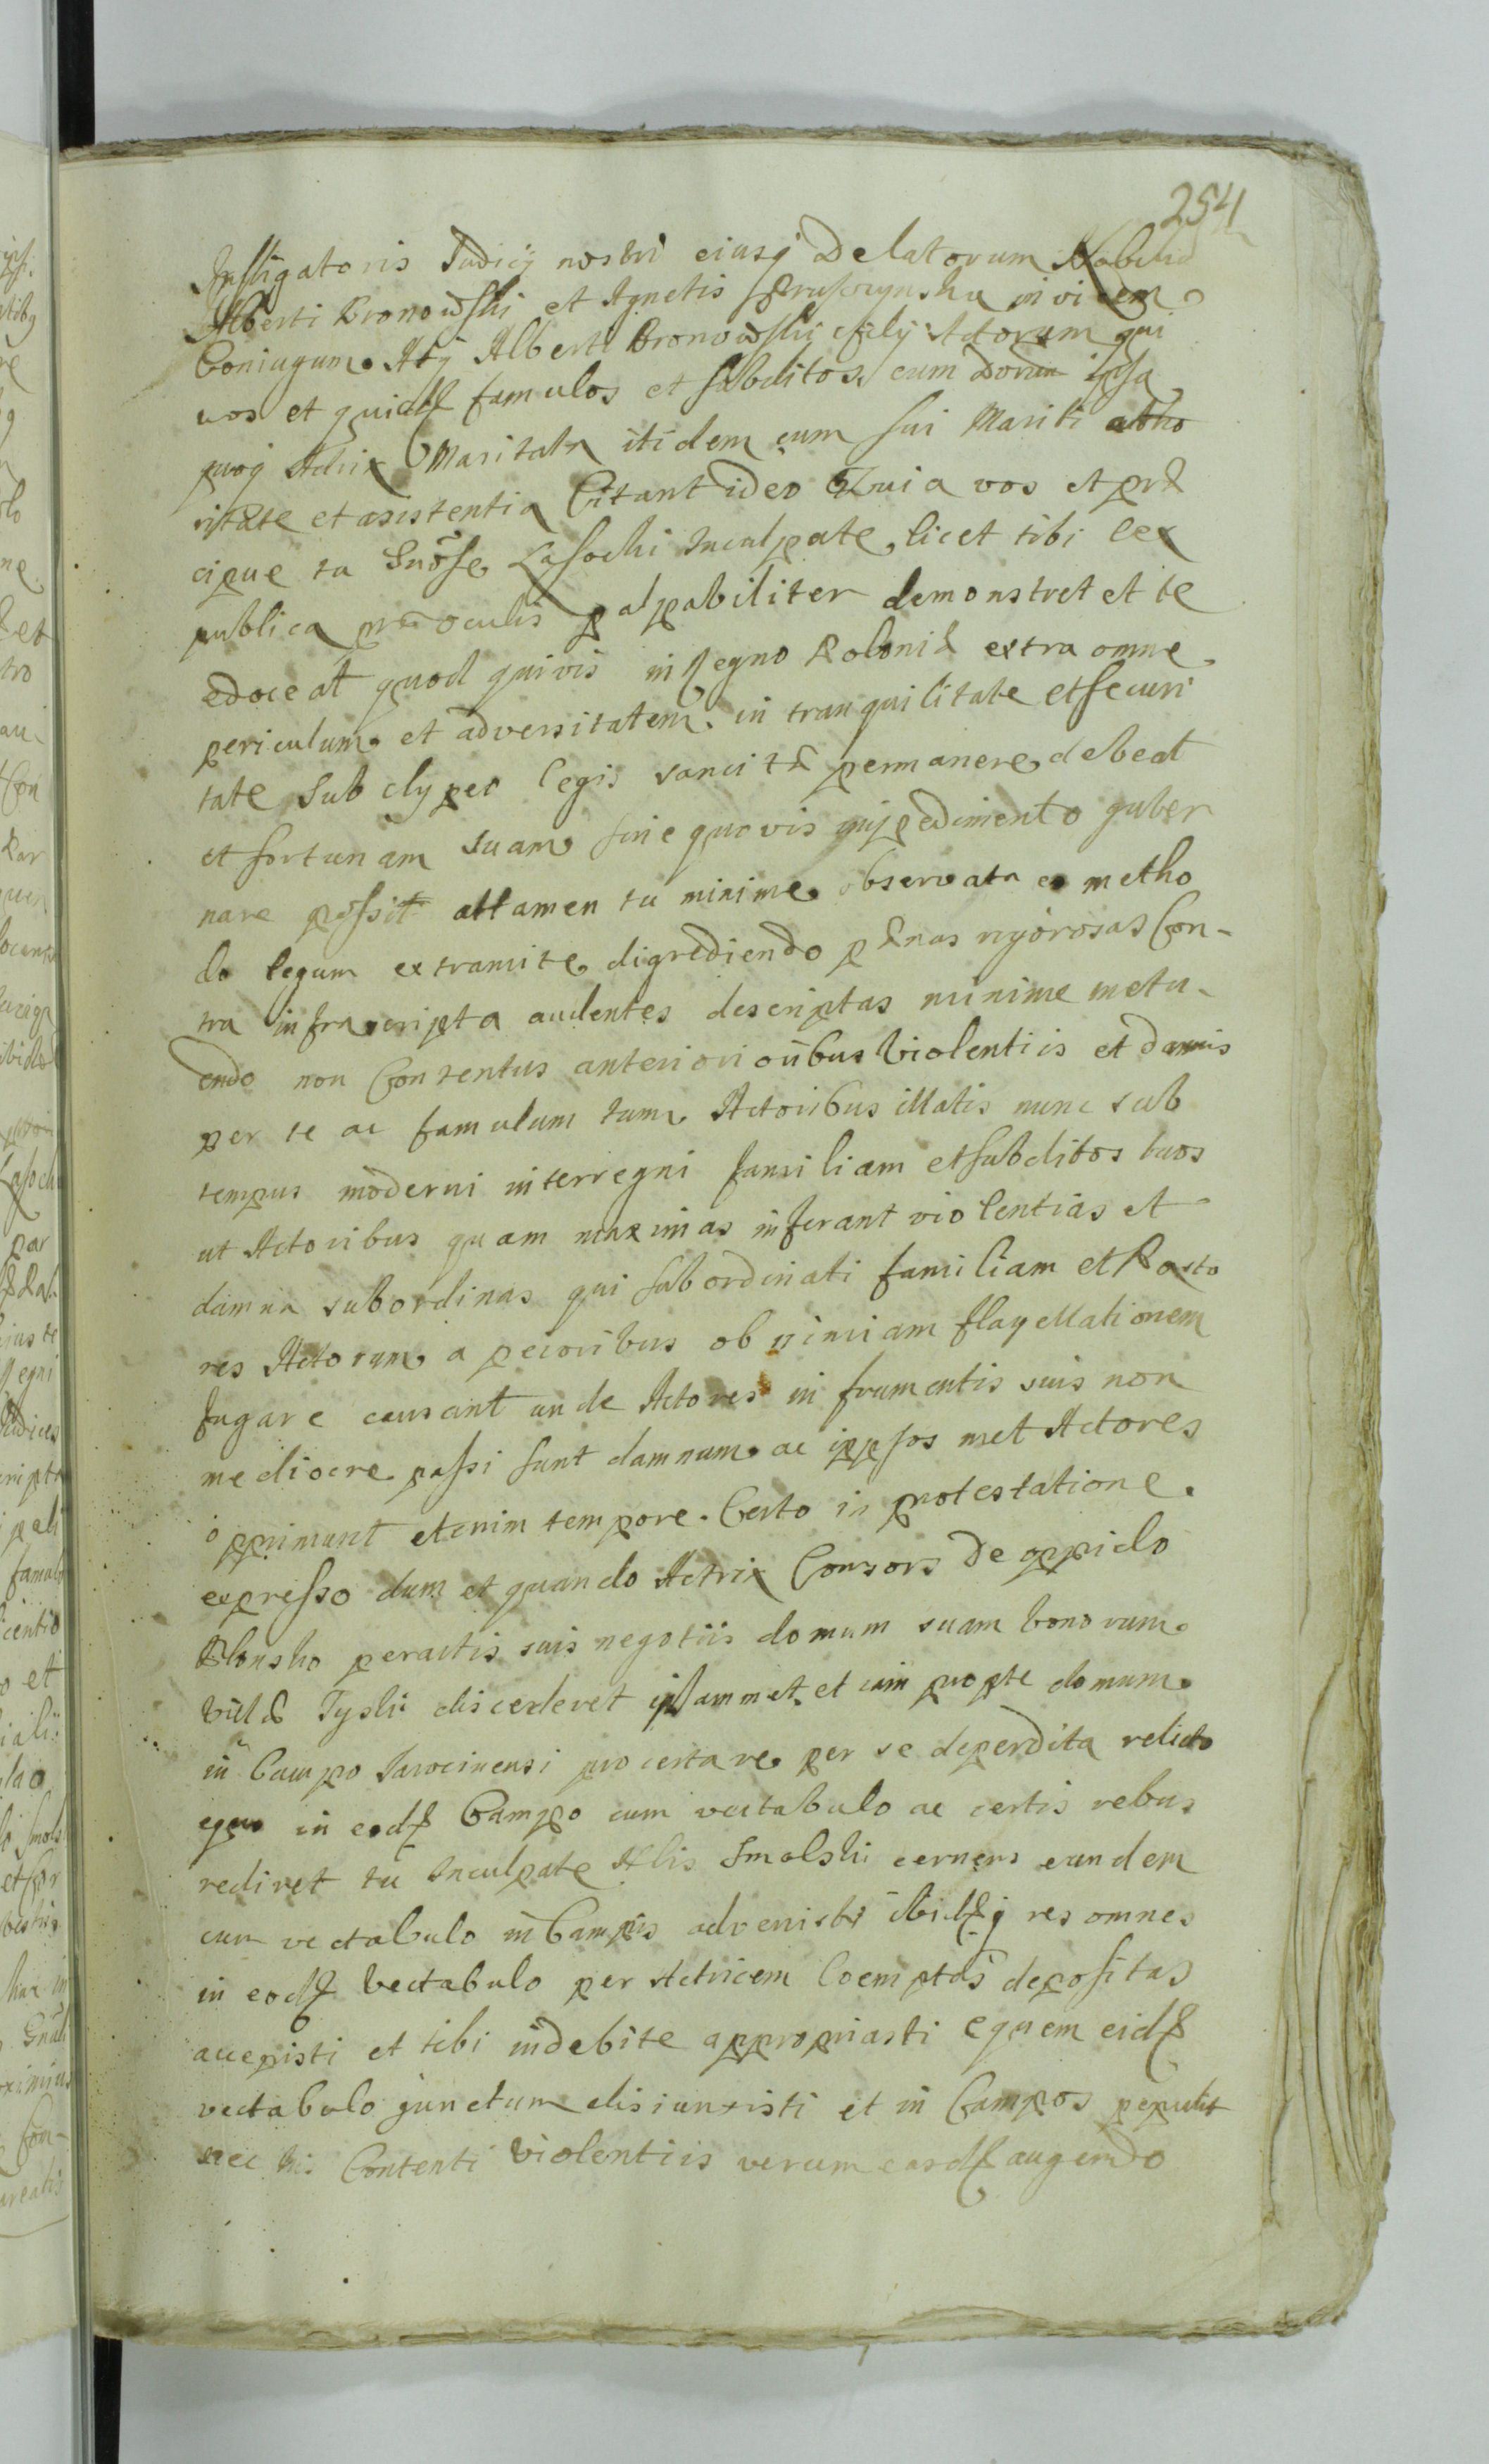 254
Instigatoris Judicij nostri eiusq Delatorum Nobiliū
Alberti Bronowski et Agnetis invicem
Coniugum Atq Alberti Bronowski filij Actorum qui
vos et quidē famulos et subditos cum ipsa
quoq Actrix Maritata itidem cum sui Mariti autho
ritate et asistentia Citant ideo Quia vos et præ
cipue tu Gnōse Lasocki Inculpate, licet tibi lex
publica præ oculis palpabiliter demonstret et te
edoceat quod quivis in Regno Poloniæ extra omne
periculum et adversitatem in tranquilitate et securi
tate sub clypeo legis sancitæ permanere debeat
et fortunam suam sine quovis impedimento guber
nare possit attamen tu minime observata ea metho
do legum extramite digrediendo pænas rigorosas Con-
tra infrascripta audentes descriptas minime metu-
endo non Contentus anterioribus Violentiis et damnis
per te ac famulum tuum Actoribus illatis nunc sub
tempus moderni interregni familiam et subditos tuos
ut Actoribus quam maximas inferant violentias et
damna subordinas qui subordinati familiam et Pasto
res Actorum a pecoribus ob nimiam flagellationem
fugare causant unde Actores in frumentis suis non
mediocre passi sunt damnum ac ippsos met Actores
opprimunt etenim tempore Certo in protestatione
expresso dum et quando Actrix Consors de oppido
Plonsko peractis suis negotiis domum suam bonorum
Villæ Tyski discederet ipsammet et eam propte domum
in Campo Jarocinensi pro certare per se deperdita relicto
equo in eodē Campo cum vectabulo ac certis rebus
rediret tu Inculpate Nlis Smolski cernens eundem
cum vectabulo in Campis advenisti ibidēq res omnes
in eodē Vectabulo per Actricem Coemptas depositas
accepisti et tibi indebite appropriasti equem eidē
vectabulo junctum disiunxisti et in Campos pepulisti
nec his Contenti Violentiis verum easdē augendo